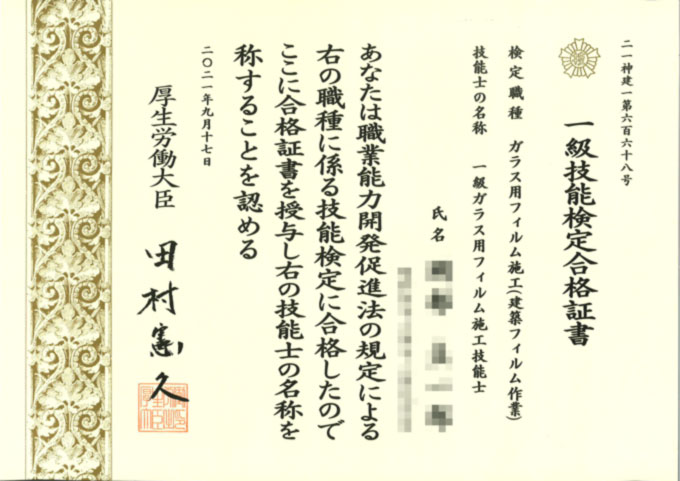 二一神建一第六百六十八号
一級技能検定合格証書
検定職種 ガラス用フィルム施工(建築フィルム作業)
技能士の名称 一級ガラス用フィルム施工技能士
氏名
あなたは職業能力開発促進法の規定による
右の職種に係る技能検定に合格したので
ここに合格証書を授与し右の技能士の名称を
称することを認める
二〇二一年九月十七日
厚生労働大臣 田村憲久